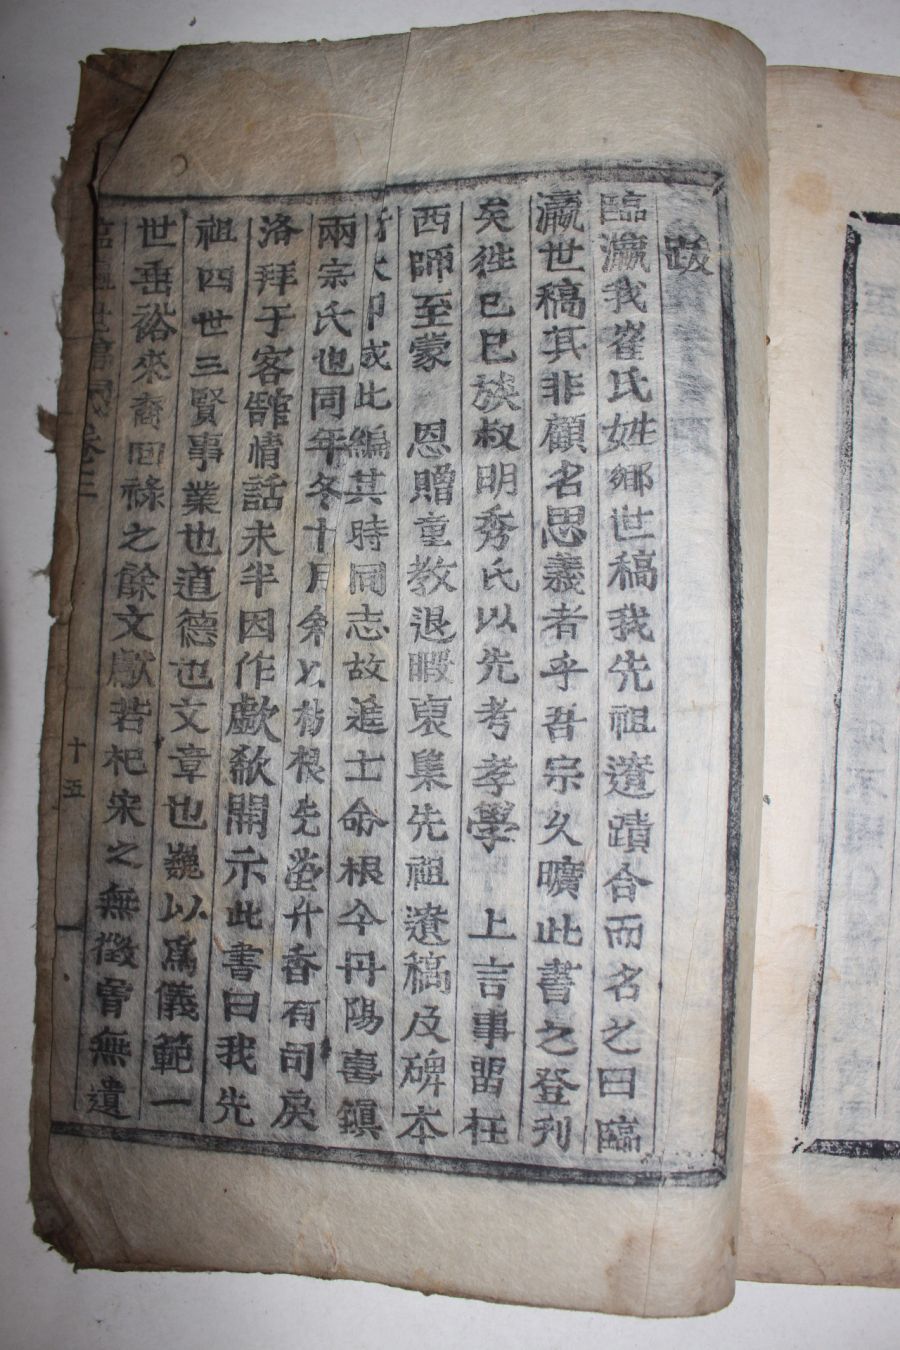 跋
臨瀛我崔氏姓鄉世稿我先祖遼蹟合而名之曰臨
瀛世稿其非顧名思義者乎吾宗久曠此書之登刊
矣徃己巳族叔明秀氏以先考孝學 上言事留枉
西師至蒙 恩贈童教退暇裒集先祖遼稿及碑本
此編其時同志故進士命根今丹陽喜鎭
兩宗氏也同年冬十月余以楸根先塋什香有司戾
洛拜于客舘情話未半因作歔欷開示此書曰我先
祖四世三賢事業也道德也文章也巍以爲儀範一
世垂裕來裔回祿之餘文獻若杞宋之無徵胥無遺
十五